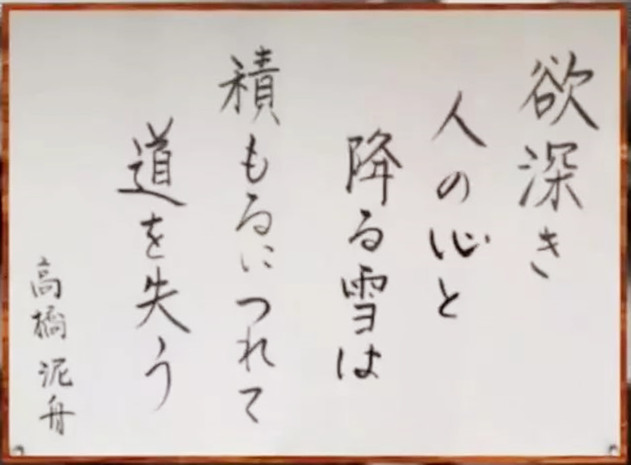 欲深き
人の心と
降る雪は
積もるにつれて
道を失う
高橋泥舟